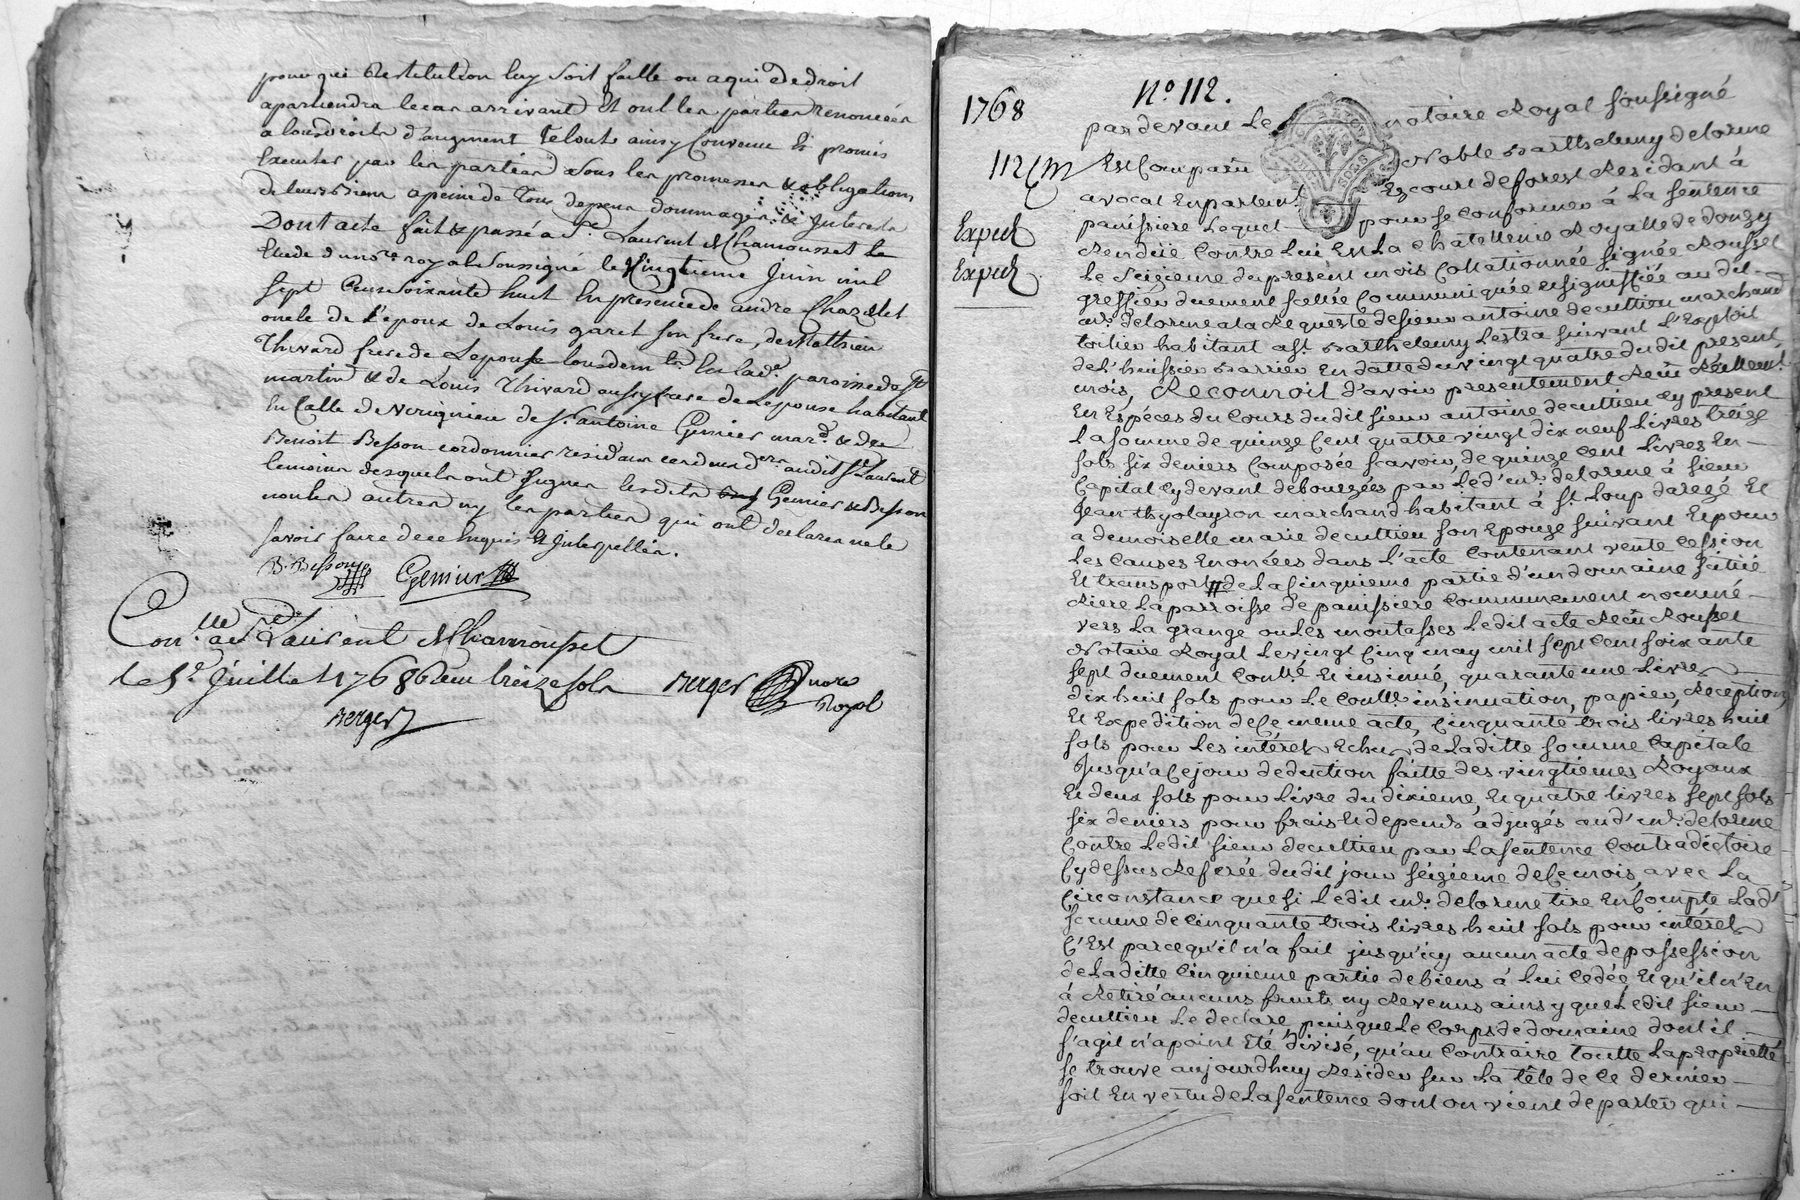 pour qui Restitution luy soit faitte ou a qui de droit
apartiendra le cas arrivant Et ont les parties renoncées
a tous droits d'augment Le tout ainsy Convenu Et promis
Executer par les parties sous les promesses & obligations
de leurs Biens a peine de Tous depens dommages & Interests
Dont acte fait & passé a St. Laurent de Chamousset Le
Etude du nore. royal Soussigné le Vingtieme Juin mil
sept Cens Soixante huit En presence de andre Chazelet
oncle de l'epoux de Louis garet son frere, de Matthieu
Thivard frere de Lepouse
martin & de Louis Thivard aussy frere de Lepouse habitant
de St. antoine Gemier mard. & de
Benoit Besson cordonnier audit St. Laurent
temoins desquels ont Signer lesdits Gemier & Besson
non les autres ny les parties qui ont declarees ne le
savoir faire de ce Enquis Et Interpellés.
B. Besson Gemier
Conlle. a St Laurent de Chamousset
le 5e Juillet 1768 treize sols Berger nore
Royal
Berger
1768
No. 112.
par devant Le notaire Royal soussigné
112
Est Comparu Noble Barthelemy delorme
avocat En parlem Ez cour de forest Residant à
Exped
panissiere Lequel pour se Conformer à La sentence
Rendüe Contre Lui En La Chatellenie Royalle de donzy
Exped
Le Seizieme du present mois Collationnée signée Roussel
greffier duement scellée Communiquée & signiffiée au dit
mr. delorme a la Requeste de sieur antoine decultieu marchand
toilier habitant a St. Barthelemy Lestra suivant L'Exploit
de l'huissier Barrieu En datte du vingt quatre du dit present
mois, Reconnoit d'avoir presentement Reçu Réellemt.
En Espéces du Cours du dit sieur antoine decultieu cy present
La somme de quinze Cent quatre vingt dix neuf Livres treize
sols six deniers Composée scavoir, de quinze cent Livres En
Capital Cy devant deboursées par Led' mr. delorme à sieur
Jean thyolayron marchand habitant à St. Loup Et
a demoiselle marie decultieu son Epouze suivant Et pour
Les Causes Enoncées dans L'acte Contenant vente Cession
Et transport de La Cinquieme partie d'un domaine Scitué
Riere La parroisse de panissiere Communement nommé
vers La grange ou Les montasses Ledit acte Reçu Roussel
Notaire Royal Le vingt Cinq may mil sept Cent soixante
sept duement Contlé Et insinué, quarante une Livre
dix huit sols pour Le Contle. insinuation, papier, Reception,
Et Expedition de Ce meme acte, Cinquante trois Livres huit
sols pour Les intérets Echus de La ditte somme Capitale
Jusqu'a Ce jour deduction faitte des vingtiemes Royaux
Et deux sols pour Livre du dixieme, Et quatre Livres sept sols
six deniers pour frais Et depents adjugés aud' mr. delorme
Contre Ledit sieur decultieu par La sentence Contradictoire
Cy dessus Referée du dit jour seizieme de Ce mois, avec La
Circonstance que si Ledit mr. delorme tire En Compte Lad'
somme de Cinquante trois Livres huit sols pour intérets
C'Est parcequ'il n'a fait jusqu'icy aucun acte de possession
de La ditte Cinquieme partie de biens à Lui Cedée Et qu'il n'En
à Retiré aucuns fruits ny Revenus ainsy que Ledit sieur
decultieu Le declare puisque Le Corps de domaine dont il
s'agit n'a point Eté divisé, qu'au Contraire toutte La proprieté
se trouve aujourdhuy Resider sur La tête de Ce dernier
soit En vertu de La sentence dont on vient de parler qui